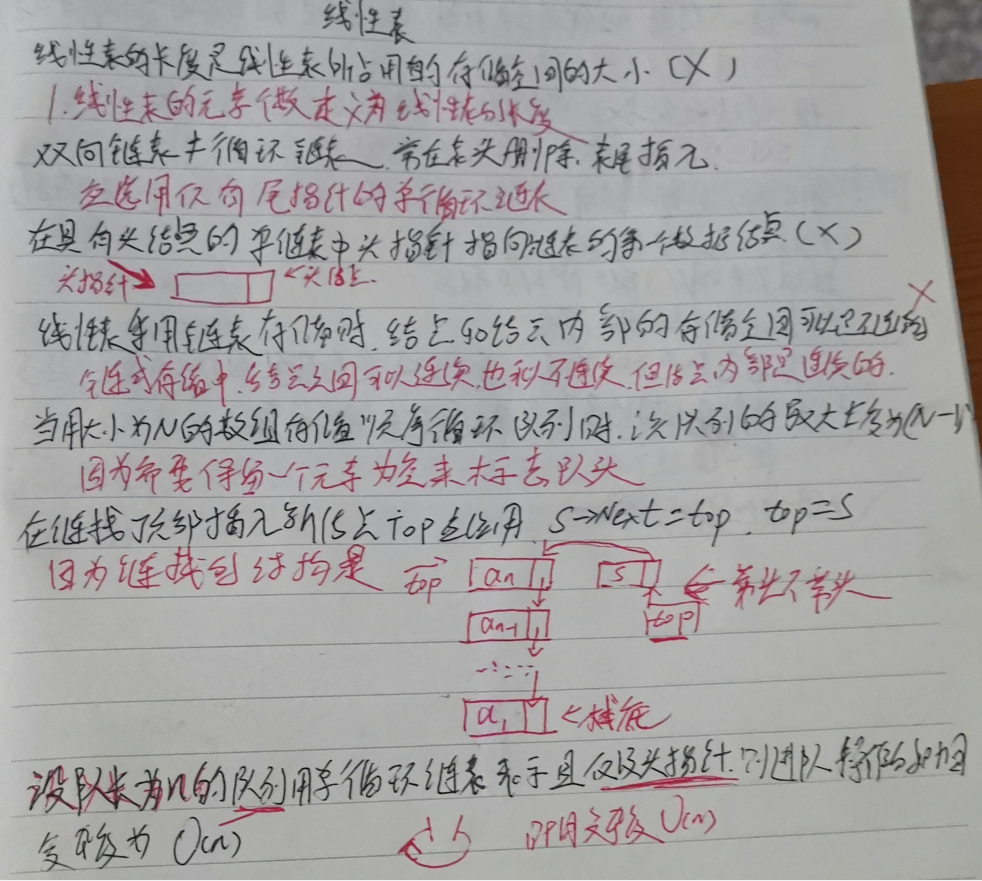 线性表
线性表的长度是线性表所占用的存储空间的大小.(X)
1.线性表的元素个数定义为线性表的长度
双向链表 循环链表 常在表头删除.表尾插元.
应选用仅有尾指针的单循环链表
在具有头结点的单链表中头指针指向链表的第一个数据结点(X)
头指针 头结点.
X
线性表采用链表存储时.结点和结点内部的存储空间可以是不连续的
链式存储中.结点之间可以连续也可以不连续.但结点内部是连续的.
当用大小为N的数组存储顺序循环队列时.该队列的最大长度为(N-1)
因为需要保留一个元素为空来 队头
在链栈顶部插入新结点top 应用 S→Next=top. top=S
因为链栈的结构是 top an S 带头
an-1 top
......
a1 ←栈底
设队长为n的队列用单循环链表表示且仅设头指针.则进队操作的时间
复杂度为 O(n)
时间复杂度O(n)